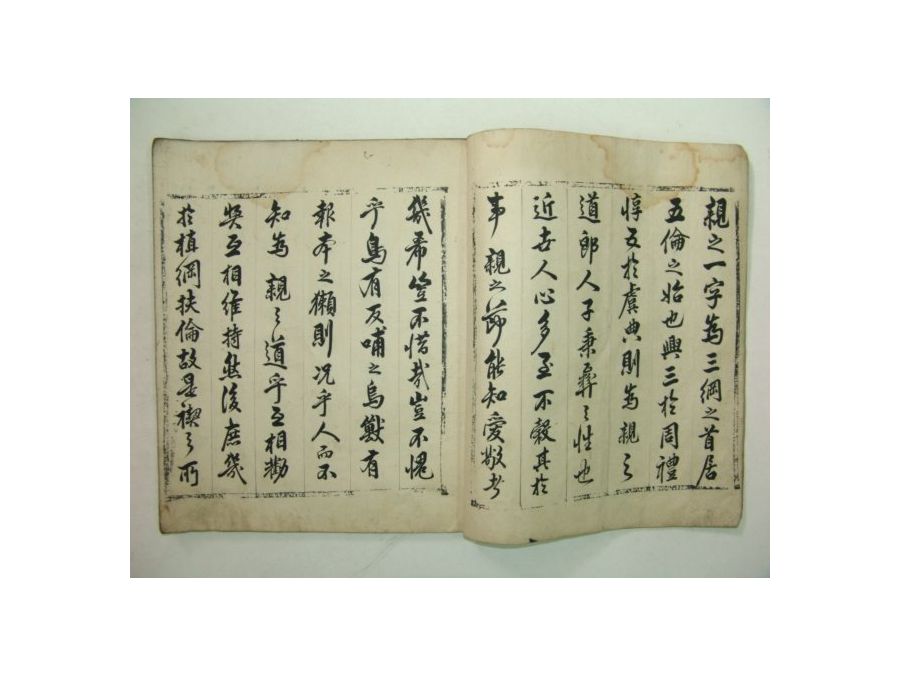 親之一字為三綱之首居
五倫之始也興三於周禮
惇五於虞典則為親之
道郎人子秉彛之性也
近世人心多至不穀其於
事 親之節能知愛敬者
幾希豈不惜哉豈不愧
乎鳥有反哺之烏獸有
報本之獺則況乎人而不
知為 親之道乎互相勸
奬互相維持然後庶幾
於植綱扶倫故是稧之所